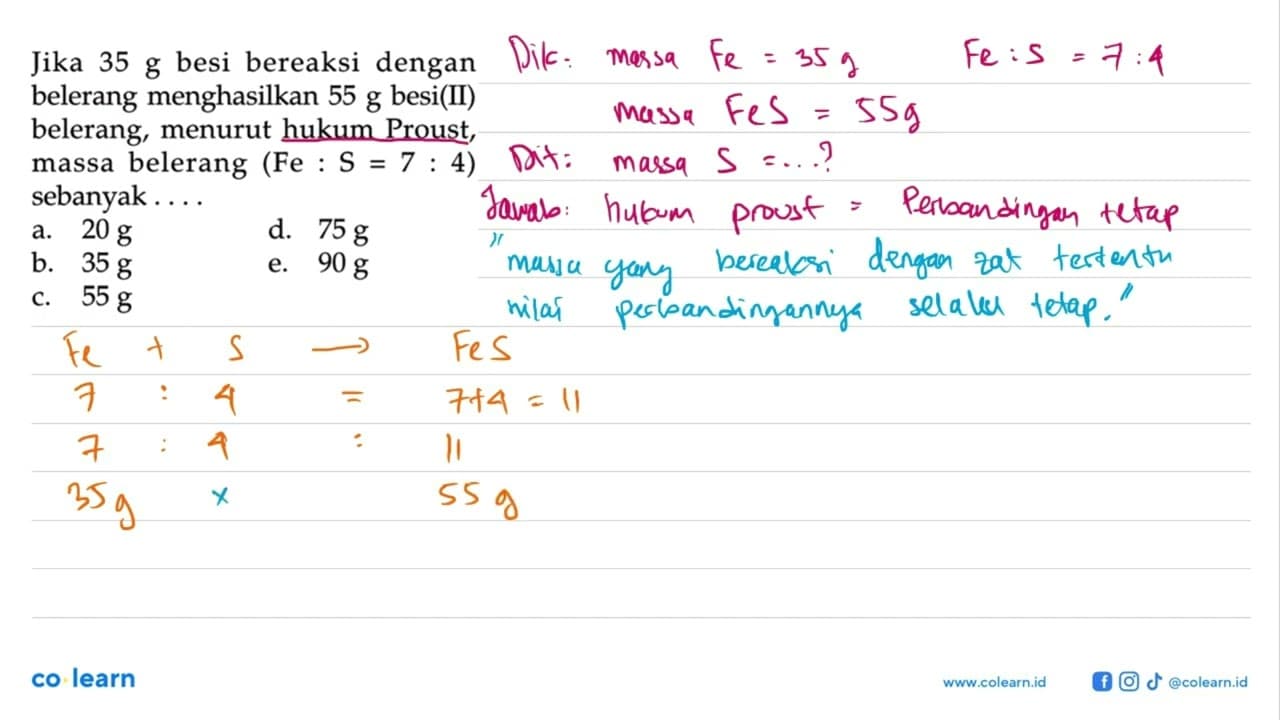 Jika 35 g besi bereaksi dengan
belerang menghasilkan 55 g besi(II)
belerang, menurut hukum Proust,
massa belerang (Fe : S = 7 : 4)
sebanyak . . . .
a. 20 g d. 75 g
b. 35 g e. 90 g
c. 55 g
Dik: massa Fe = 35 g Fe : S = 7 : 4
massa FeS = 55g
Dit: massa S = ...?
Jawab: hukum proust = Perbandingan tetap
"massa yang bereaksi dengan zat tertentu
nilai perbandingannya selalu tetap."
Fe + S → FeS
7 : 4 = 7+4 = 11
7 : 4 : 11
35 g x 55 g
co learn
www.colearn.id @colearn.id